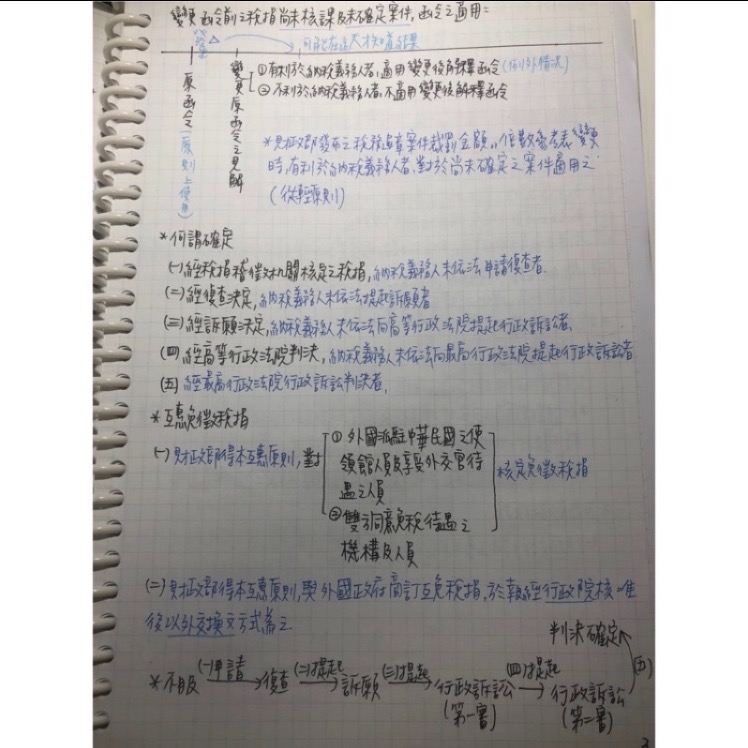 變更函令前之稅捐尚未核課及未確定案件,函令之適用:
原函令(原則上使用)
變更原函令之見解
①有利於納稅義務人者,適用變更後解釋函令(例外情況)
②不利於納稅義務人者,不適用變更後解釋函令
*財政部發布之稅務違章案件裁罰金額or倍數參考表變更
時,有利於納稅義務人者,對於尚未確定之案件適用之
(從輕原則)
*何謂確定
(一)經稅捐稽徵機關核定之稅捐,納稅義務人未依法申請復查者.
(二)經復查決定,納稅義務人未依法提起訴願者
(三)經訴願決定,納稅義務人未依法向高等行政法院提起行政訴訟者.
(四)經高等行政法院判決,納稅義務人未依法向最高行政法院提起行政訴訟者
(五)經最高行政法院行政訴訟判決者.
*互惠免徵稅捐
(一)財政部得本互惠原則,對
①外國派駐中華民國之使
領館人員及享受外交官待
遇之人員
②雙方同意免稅待遇之
機構及人員
核定免徵稅捐
(二)財政部得本互惠原則,與外國政府商訂互免稅捐,於報經行政院核准
後以外交換文方式為之
*不服 (一)申請 復查 (二)提起 訴願 (三)提起 行政訴訟 (第一審) (四)提起 行政訴訟 (第二審) (五) 判決確定